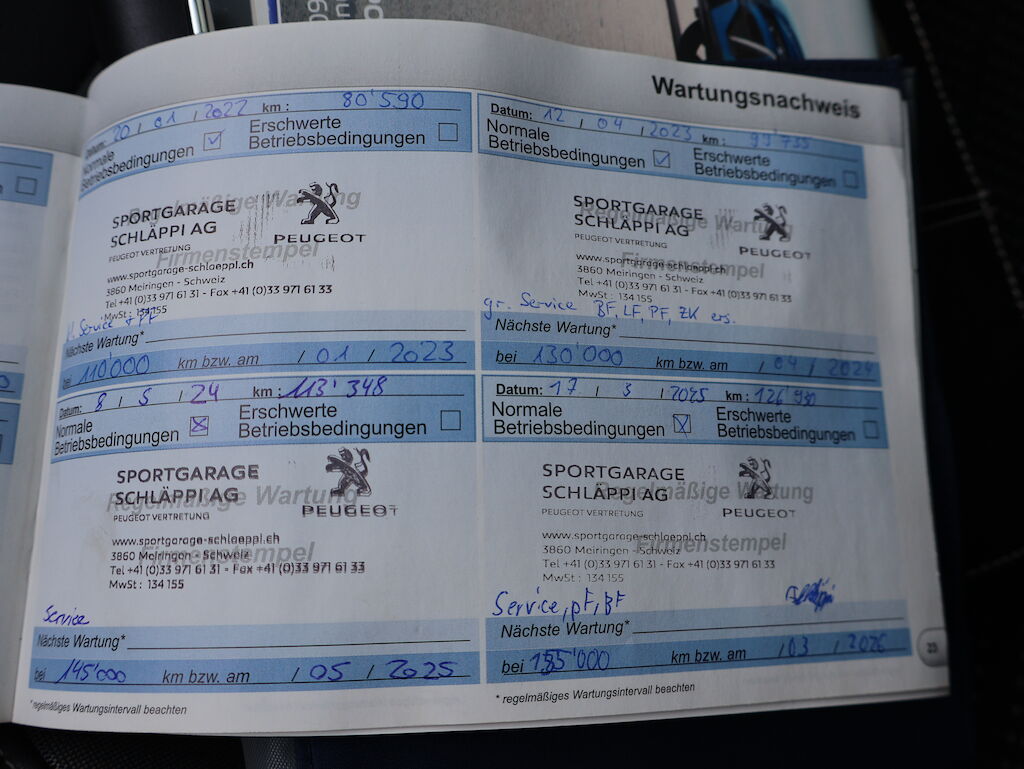 Wartungsnachweis
Datum: 20 / 01 / 2022 km : 80'590
Normale Betriebsbedingungen
Erschwerte Betriebsbedingungen
Regelmäßige Wartung
Firmenstempel
SPORTGARAGE
SCHLÄPPI AG
PEUGEOT VERTRETUNG
PEUGEOT
www.sportgarage-schlaeppi.ch
3860 Meiringen - Schweiz
Tel +41 (0)33 971 61 31 - Fax +41 (0)33 971 61 33
MwSt : 134 155
kl. Service + PF
Nächste Wartung*
bei 110'000 km bzw. am / 01 / 2023
Datum: 12 / 04 / 2023 km : 99'735
Normale
Betriebsbedingungen
Erschwerte
Betriebsbedingungen
Regelmäßige Wartung
Firmenstempel
SPORTGARAGE
SCHLÄPPI AG
PEUGEOT VERTRETUNG
PEUGEOT
www.sportgarage-schlaeppi.ch
3860 Meiringen - Schweiz
Tel +41 (0)33 971 61 31 - Fax +41 (0)33 971 61 33
MwSt : 134 155
gr. Service BF, LF, PF, ZK ers.
Nächste Wartung*
bei 130'000 km bzw. am / 04 / 2024
Datum: 8 / 5 / 24 km : 113'348
Normale
Betriebsbedingungen
Erschwerte
Betriebsbedingungen
Regelmäßige Wartung
Firmenstempel
SPORTGARAGE
SCHLÄPPI AG
PEUGEOT VERTRETUNG
PEUGEOT
www.sportgarage-schlaeppi.ch
3860 Meiringen - Schweiz
Tel +41 (0)33 971 61 31 - Fax +41 (0)33 971 61 33
MwSt : 134 155
Service
Nächste Wartung*
bei 145'000 km bzw. am / 05 / 2025
* regelmäßiges Wartungsintervall beachten
Datum: 17 / 3 / 2025 km : 126'930
Normale
Betriebsbedingungen
Erschwerte
Betriebsbedingungen
Regelmäßige Wartung
Firmenstempel
SPORTGARAGE
SCHLÄPPI AG
PEUGEOT VERTRETUNG
PEUGEOT
www.sportgarage-schlaeppi.ch
3860 Meiringen - Schweiz
Tel +41 (0)33 971 61 31 - Fax +41 (0)33 971 61 33
MwSt : 134 155
Service, PF, BF
Nächste Wartung*
bei 155'000 km bzw. am / 03 / 2026
* regelmäßiges Wartungsintervall beachten